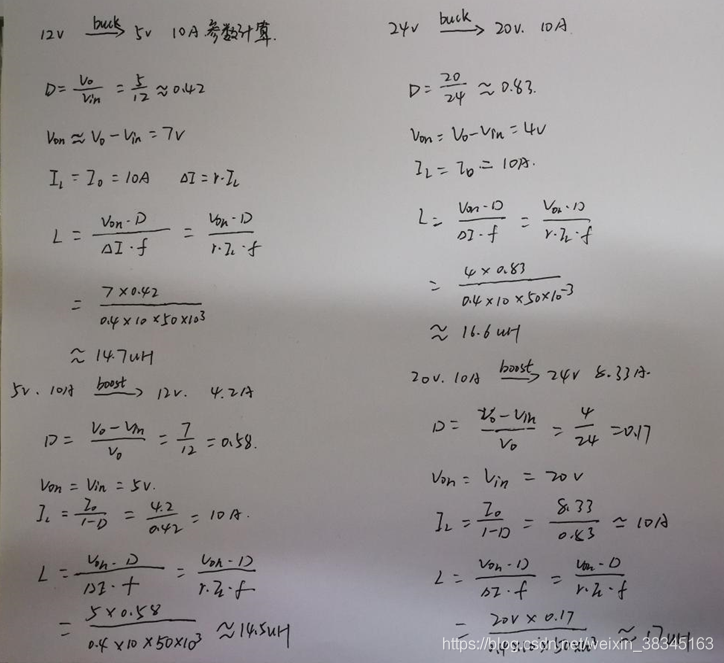 12V buck→ 5V 10A 参数计算
D = Vo/Vin = 5/12 ≈ 0.42
Von ≈ Vo - Vin = 7V
IL = Io = 10A ΔI = r·IL
L = Von·D/ΔI·f = Von·D/r·IL·f
= 7×0.42/0.4×10×50×10³
≈ 14.7uH
5V. 10A boost→ 12V. 4.2A
D = Vo-Vin/Vo = 7/12 = 0.58.
Von = Vin = 5V.
IL = Io/1-D = 4.2/0.42 = 10A.
L = Von·D/ΔI·f = Von·D/r·IL·f
= 5×0.58/0.4×10×50×10³ ≈ 14.5uH
24V buck→ 20V. 10A
D = 20/24 ≈ 0.83.
Von = Vo-Vin = 4V
IL = Io = 10A.
L = Von·D/ΔI·f = Von·D/r·IL·f
= 4×0.83/0.4×10×50×10⁻³
≈ 16.6uH
20V. 10A boost→ 24V 8.33A.
D = Vo-Vin/Vo = 4/24 = 0.17
Von = Vin = 20V
IL = Io/1-D = 8.33/0.83 ≈ 10A
L = Von·D/ΔI·f = Von·D/r·IL·f
= 20V×0.17/0.4×10×50×10³ ≈ 17uH
https://blog.csdn.net/weixin_38345163